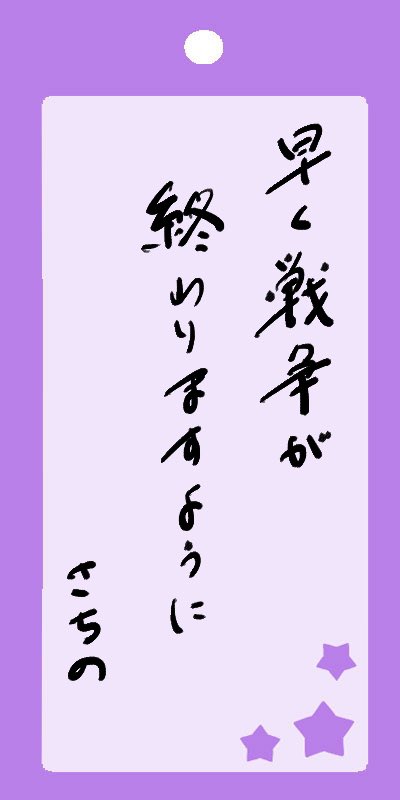 早く戦争が
終わりますように
さちの